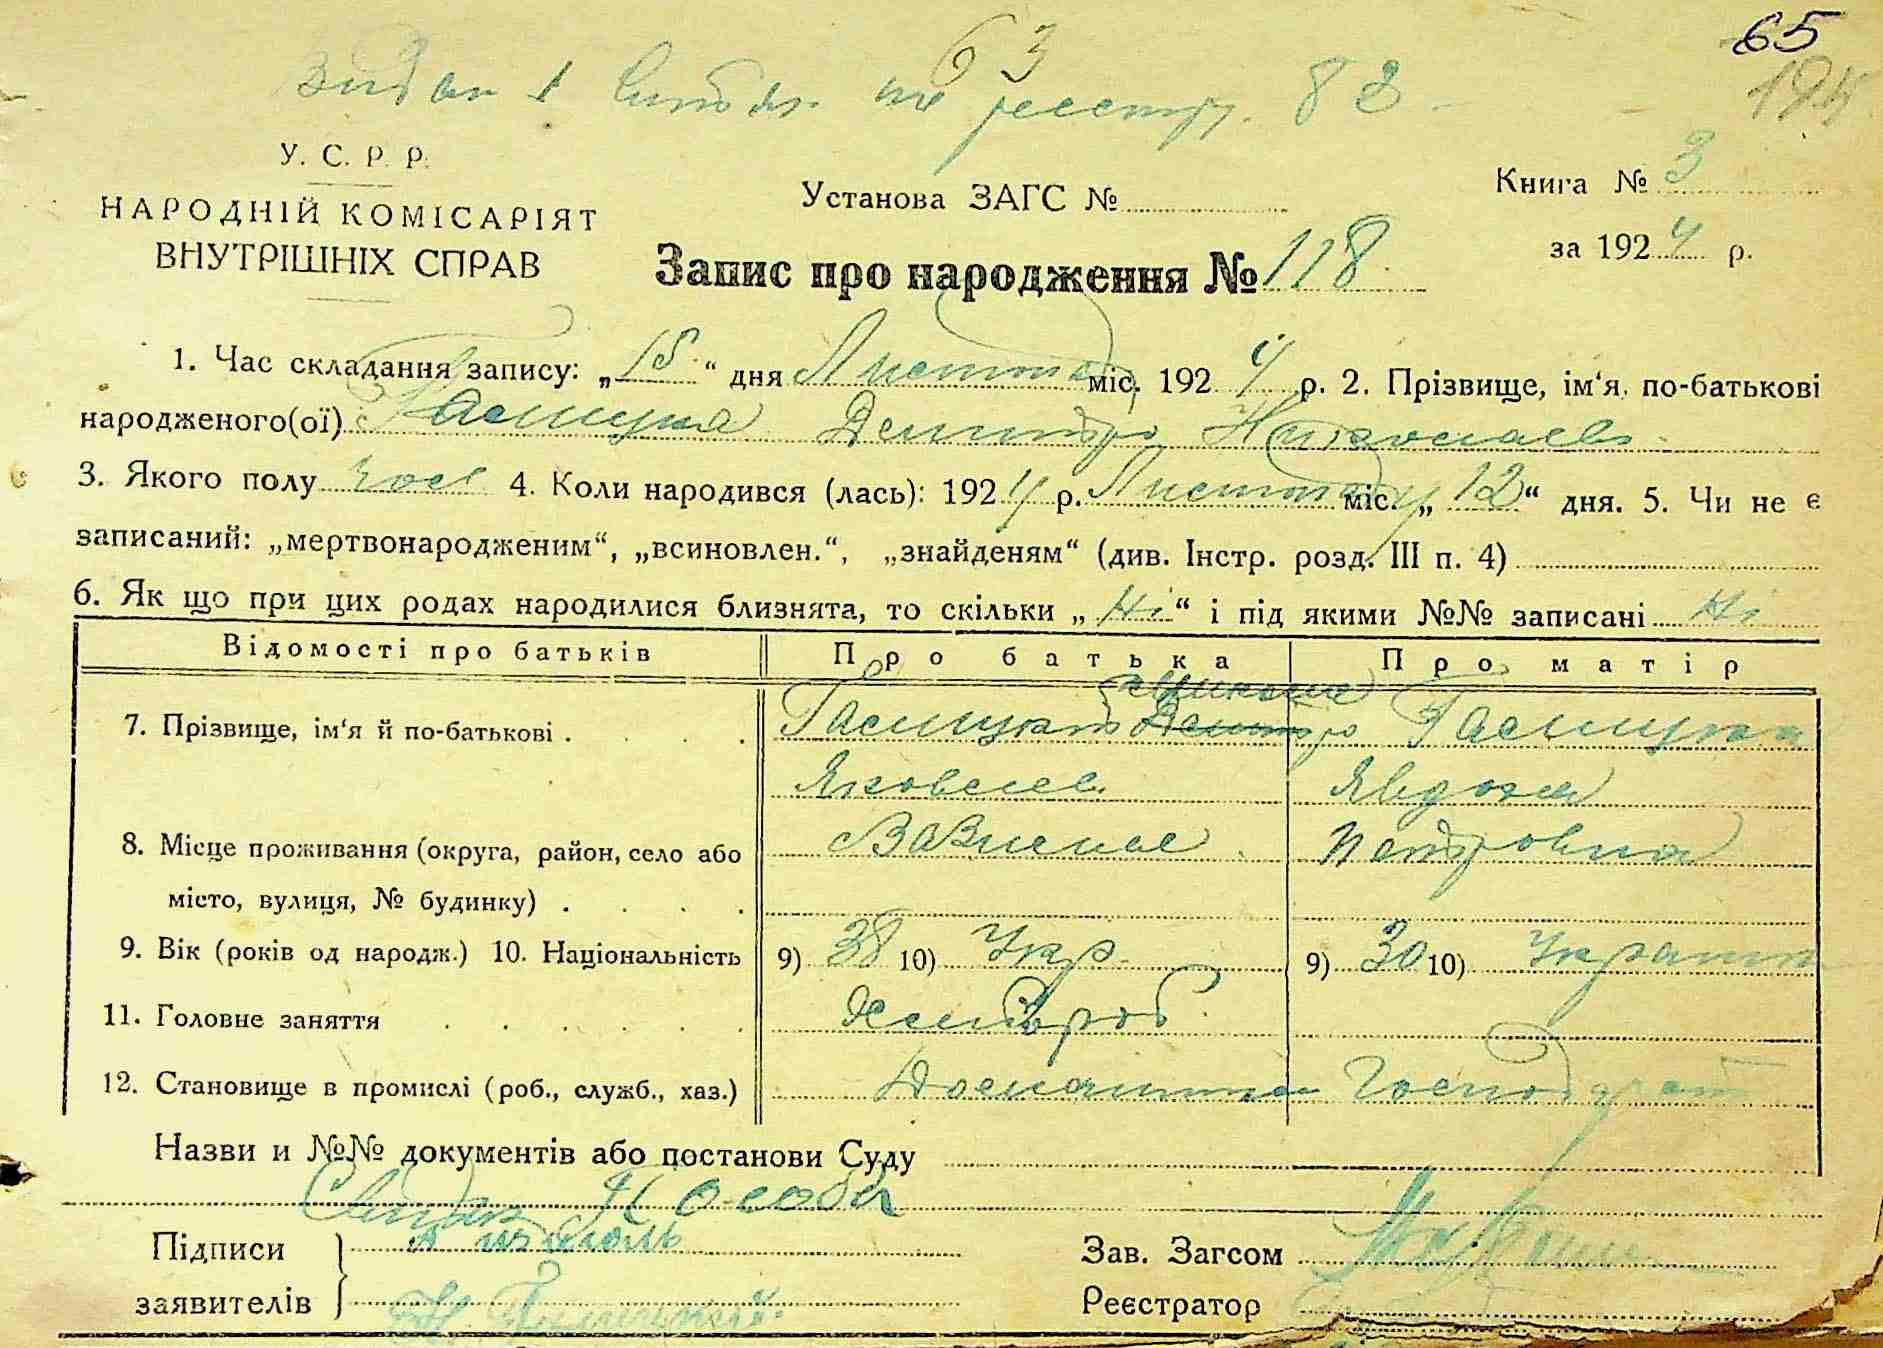 65
63
Видан 1 по реестру. 82
У. С. Р. Р.
НАРОДНІЙ КОМІСАРІЯТ
ВНУТРІШНІХ СПРАВ
Установа ЗАГС №
Книга № 3
за 1924 р.
Запис про народження № 118
1. Час складання запису: „15“ дня Листопад міс. 1924 р. 2. Прізвище, ім‘я, по-батькові
народженого(ої) Дмитро Николаев
3. Якого полу чол 4. Коли народився (лась): 1924 р. Листопаду міс. „12“ дня. 5. Чи не є
записаний: „мертвонародженим“, „всиновлен.“, „знайденям“ (див. Інстр. розд. III п. 4)
6. Як що при цих родах народилися близнята, то скільки „Ні“ і під якими №№ записані Ні
Відомості про батьків Про батька Про матір
7. Прізвище, ім‘я й по-батькові
Яковлев Явдоха
8. Місце проживання (округа, район, село або Петровна
місто, вулиця, № будинку)
9. Вік (років од народж.) 10. Національність 9) 38 10) Укр. 9) 30 10)
11. Головне заняття Хлібороб
12. Становище в промислі (роб., служб., хаз.) Домашнє
Назви и №№ документів або постанови Суду
Підписи
заявителів
Зав. Загсом
Реєстратор